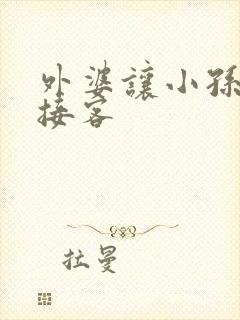 外婆讓小孫
接客
拉曼